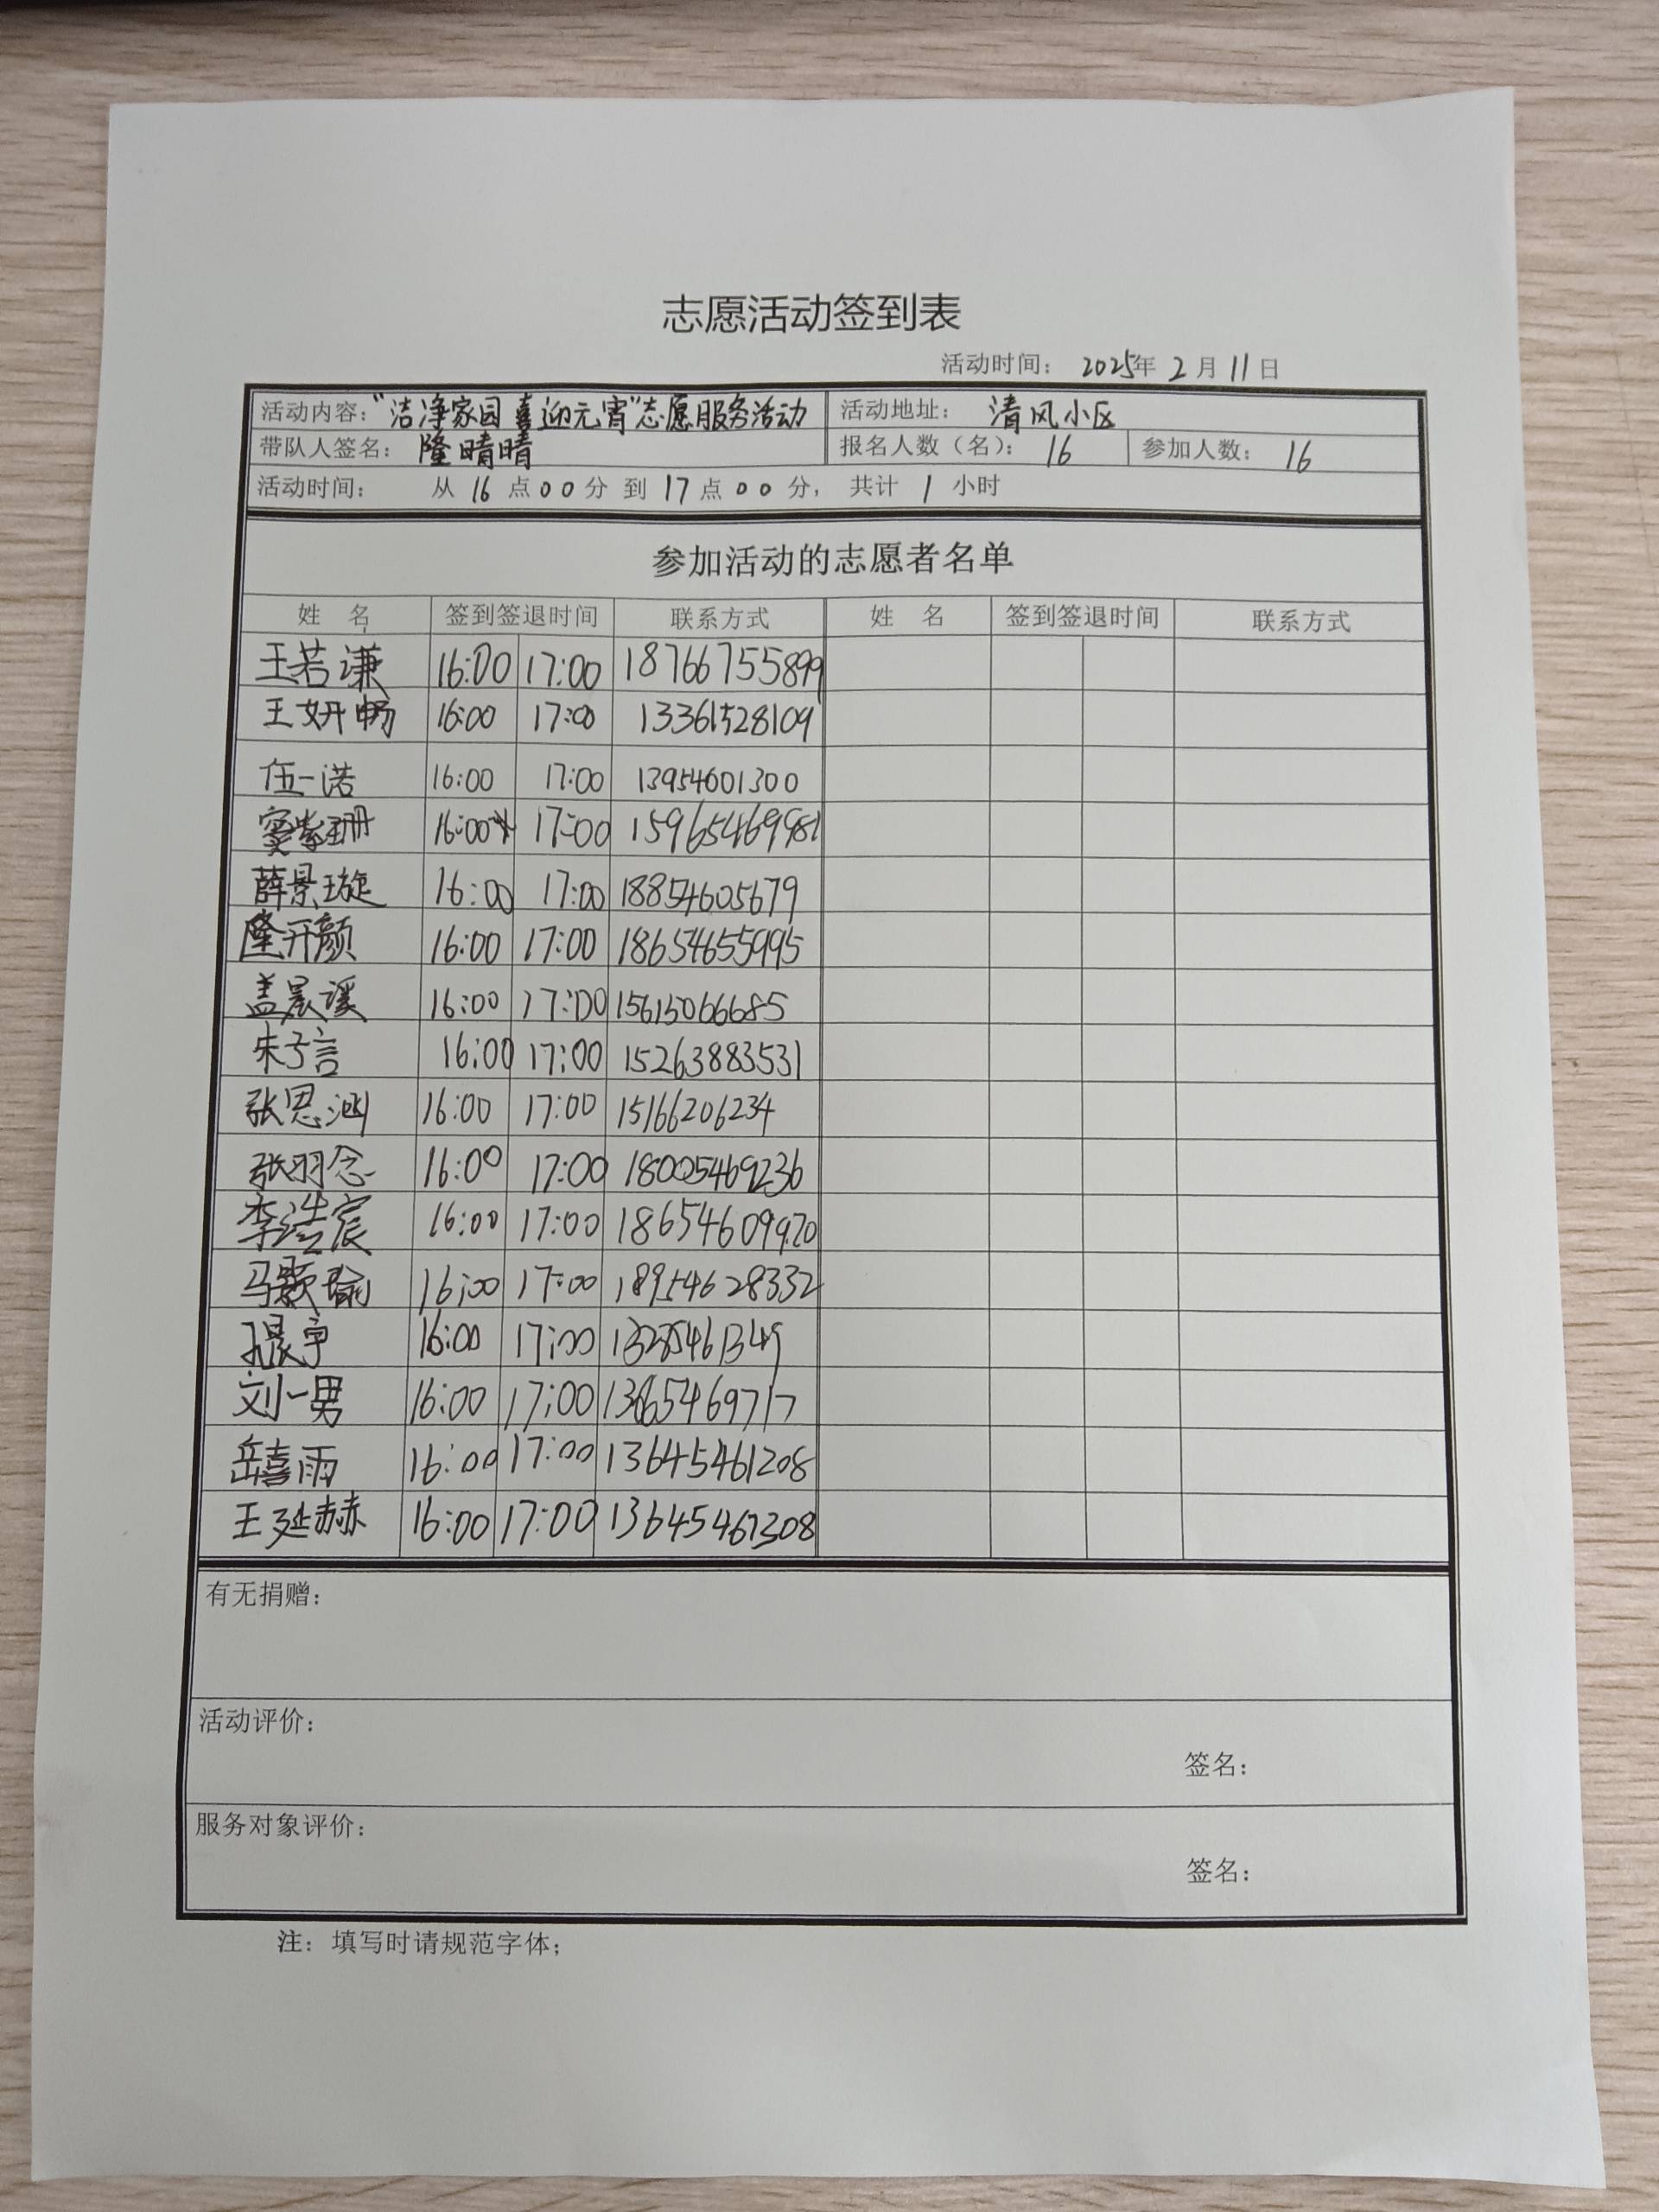 志愿活动签到表
活动时间： 2025年 2 月 11 日
活动内容：“洁净家园 喜迎元宵”志愿服务活动 活动地址： 清风小区
带队人签名： 隆晴晴 报名人数（名）： 16 参加人数： 16
活动时间： 从 16 点 00 分 到 17 点 00 分， 共计 1 小时
参加活动的志愿者名单
姓 名 签到签退时间 联系方式 姓 名 签到签退时间 联系方式
王若谦 16:00 17:00 18766755899
王妍畅 16:00 17:00 13361528109
伍一诺 16:00 17:00 13954601300
窦紫珊 16:00 17:00 15965469981
薛景璇 16:00 17:00 18854605679
隆开颜 16:00 17:00 18654655995
盖晨溪 16:00 17:00 15615066685
朱子言 16:00 17:00 15263883531
张思涵 16:00 17:00 15166206234
张羽念 16:00 17:00 180025469236
李浩宸 16:00 17:00 18654609920
马颢瑜 16:00 17:00 18954628332
16:00 17:00
刘一男 16:00 17:00
岳喜雨 16:00 17:00 13645461208
王延赫 16:00 17:00 13645461308
有无捐赠：
活动评价：
签名：
服务对象评价：
签名：
注：填写时请规范字体；